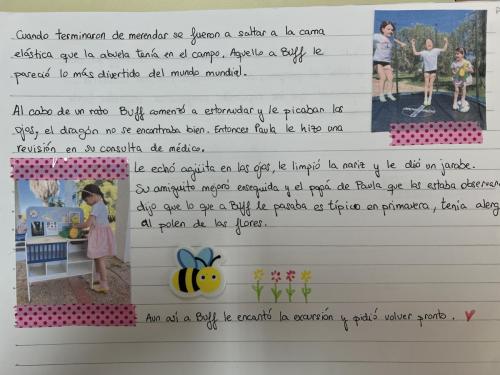 Cuando terminaron de merendar se fueron a saltar a la cama
elástica que la abuela tenía en el campo. Aquello a Buff le
pareció lo más divertido del mundo mundial.
Al cabo de un rato Buff comenzó a estornudar y le picaban los
ojos, el dragón no se encontraba bien. Entonces Paula le hizo una
revisión en su consulta de médico.
Le echó agüita en los ojos, le limpió la nariz y le dió un jarabe.
Su amiguito mejoró enseguida y el papá de Paula que las estaba
dijo que lo que a Buff le pasaba es típico en primavera, tenía
al polen de las flores.
Aun así a Buff le encantó la excursión y pidió volver pronto.